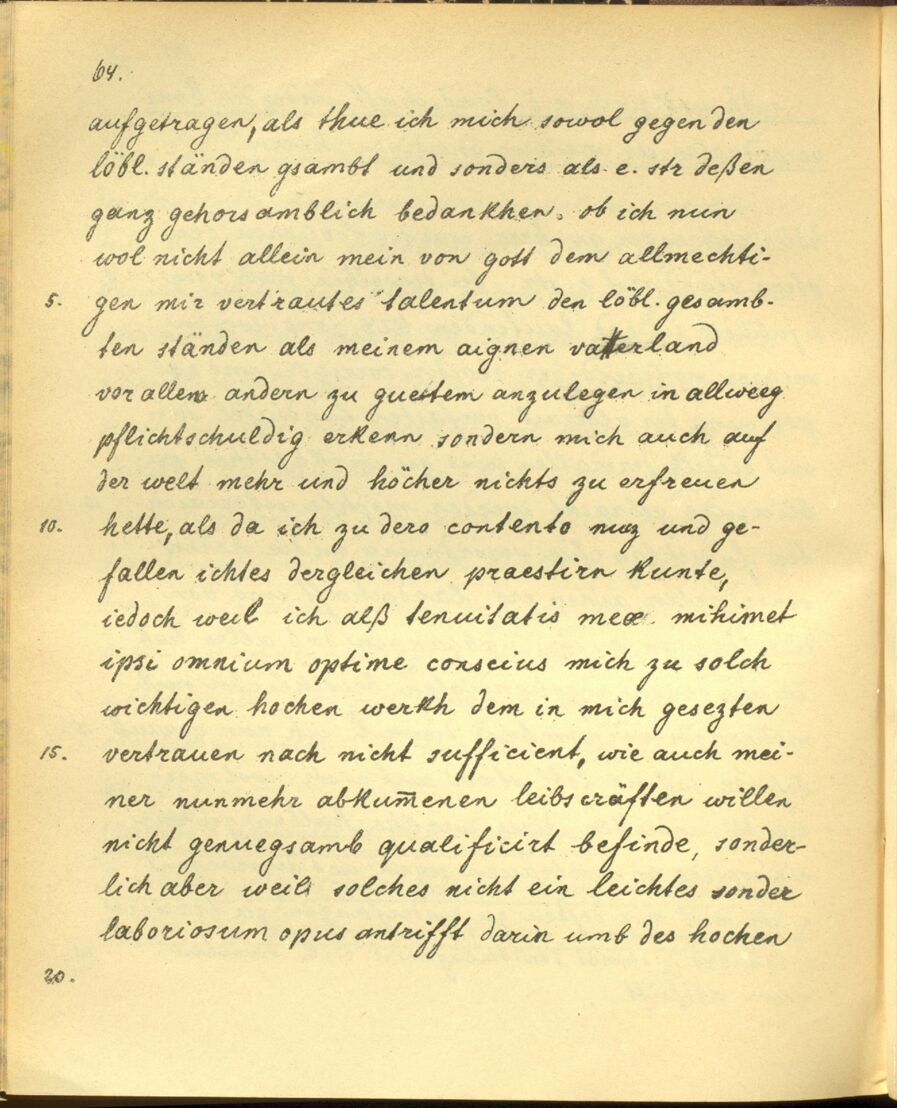 64.
aufgetragen, als thue ich mich sowol gegen den
löbl. ständen gsambt und sonders als e. str deßen
ganz gehorsamblich bedankhen. ob ich nun
wol nicht allein mein von gott dem allmechti-
5. gen mir vertrautes talentum den löbl. gesamb-
ten ständen als meinem aignen vatterland
vor allen andern zu guetem anzulegen in allweeg
pflichtschuldig erkenn sondern mich auch auf
der welt mehr und höcher nichts zu erfreuen
10. hette, als da ich zu dero contento nuz und ge-
fallen ichtes dergleichen praestirn kunte,
iedoch weil ich alß tenuitatis meæ mihimet
ipsi omnium optime conscius mich zu solch
wichtigen hochen werkh dem in mich gesezten
15. vertrauen nach nicht sufficient, wie auch mei-
ner nunmehr abkum̅enen leibscräften willen
nicht genuegsamb qualificirt befinde, sonder-
lich aber weil solches nicht ein leichtes sonder
laboriosum opus antrifft darin umb des hochen
20.